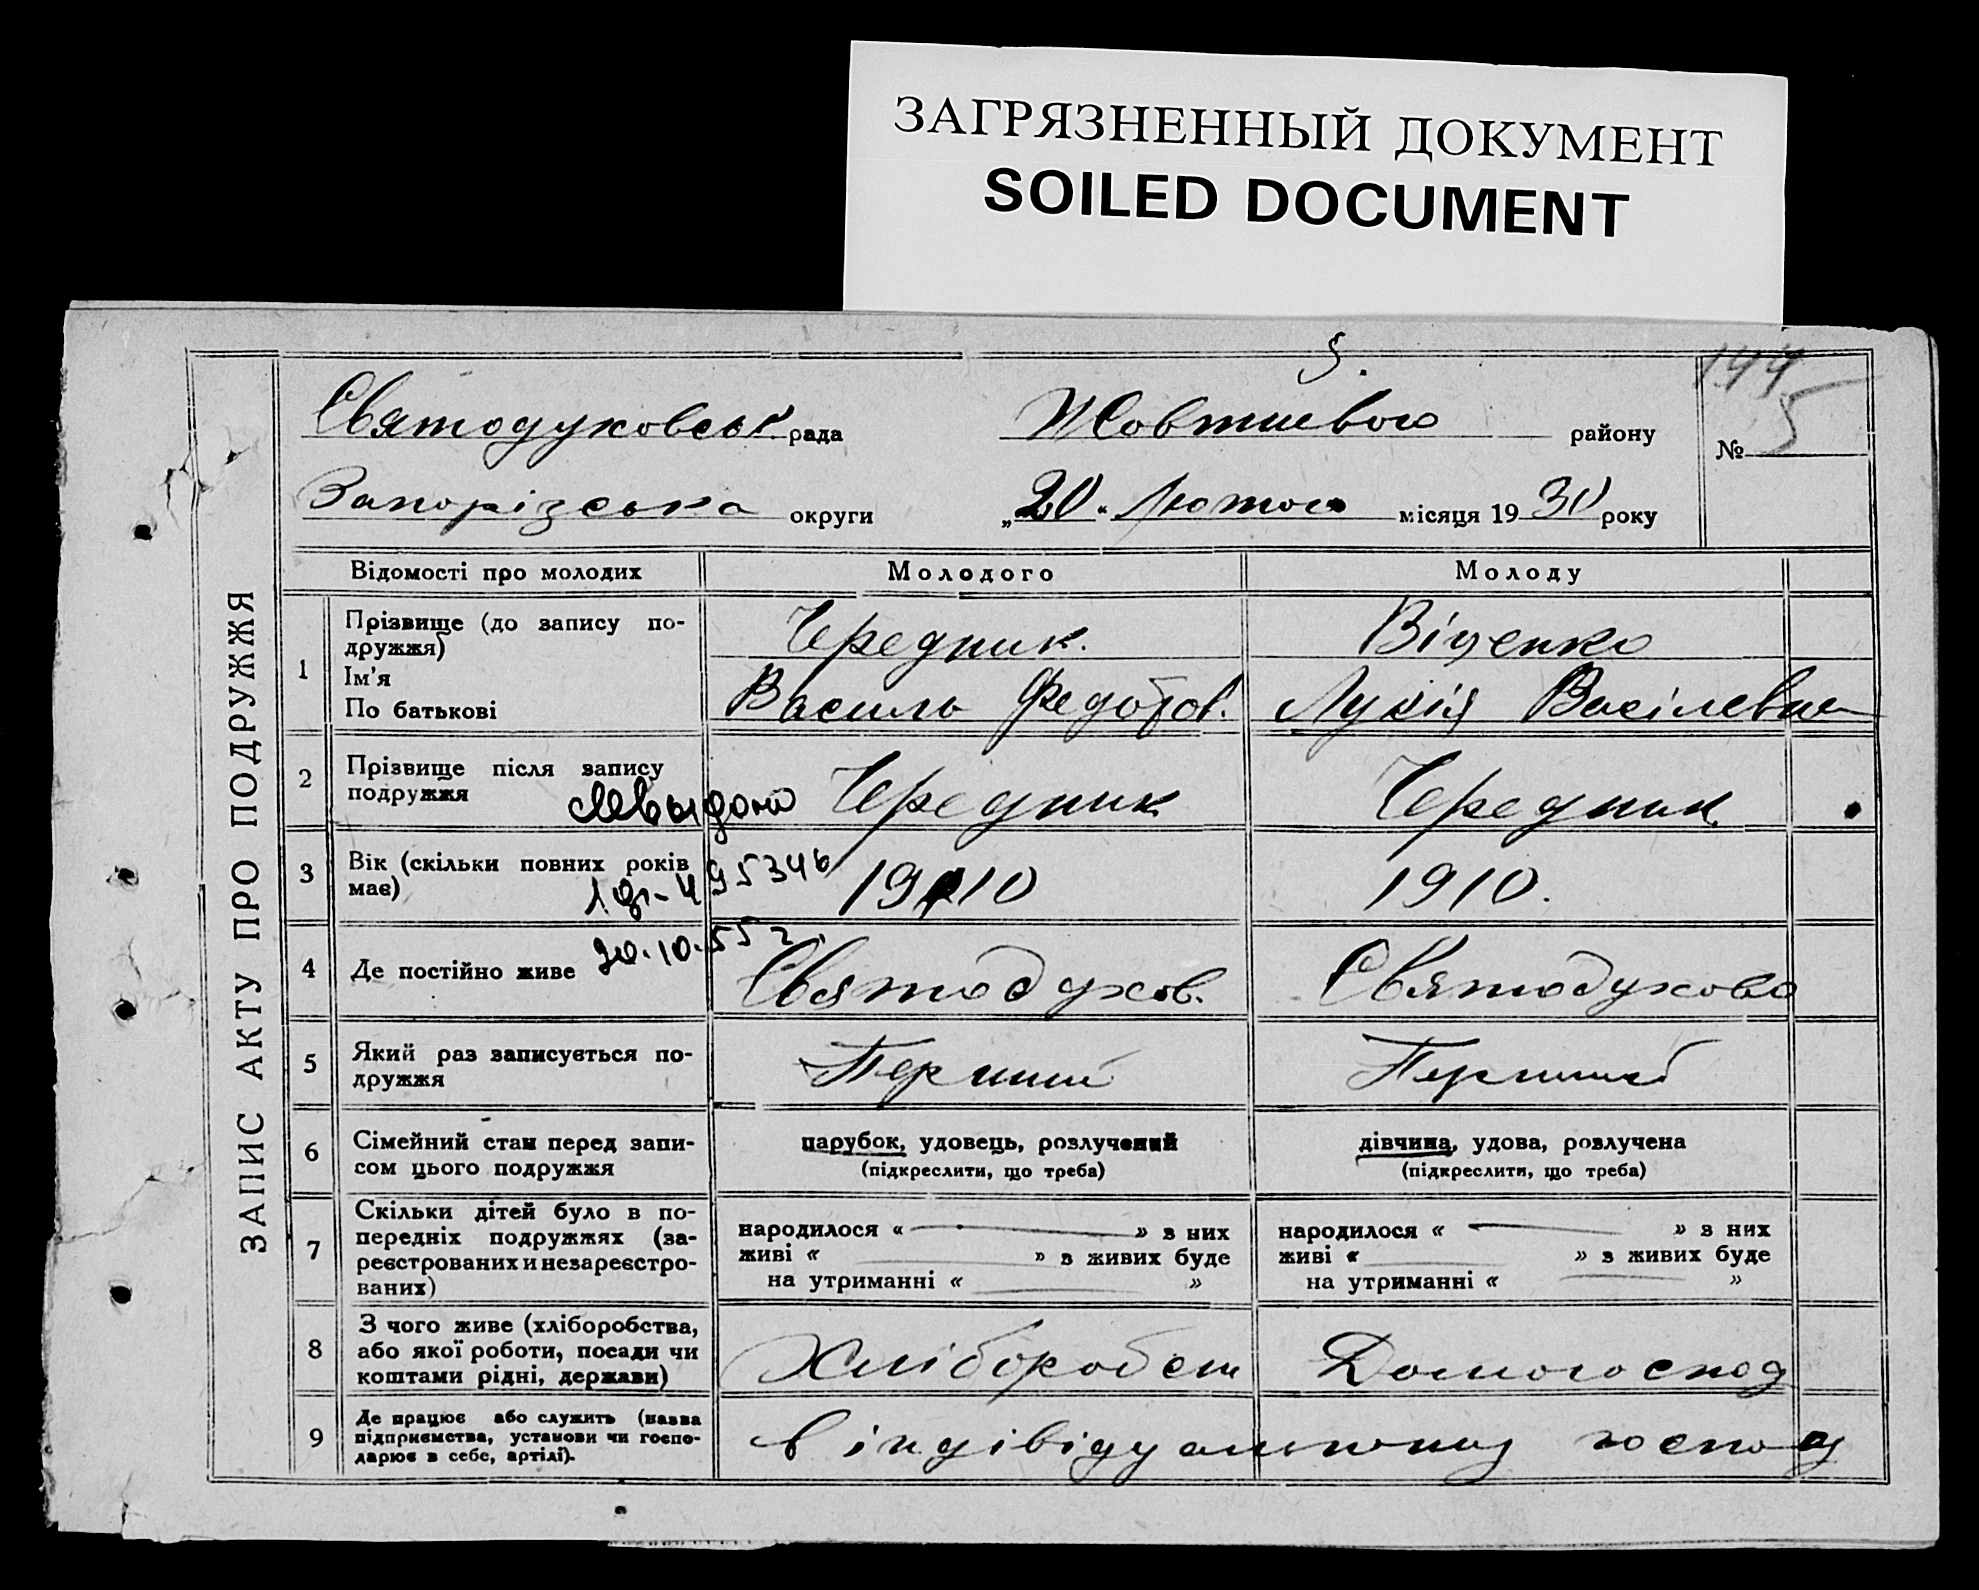 ЗАГРЯЗНЕННЫЙ ДОКУМЕНТ
SOILED DOCUMENT
5.
144
Святодуховськ рада Жовтневого району № 5
Запорізська округи „20“ Лютого місяця 1930 року
ЗАПИС АКТУ ПРО ПОДРУЖЖЯ
Відомості про молодих Молодого Молоду
1 Прізвище (до запису по-
дружжя)
Ім'я
По батькові
Чередник. Віценко
Василь Федотов. Лукія Васілевна
2 Прізвище після запису
подружжя
Чередник Чередник
3 Вік (скільки повних років
має)
495346
1910 1910.
20.10.55 г.
4 Де постійно живе Святодухов. Святодухово
5 Який раз записується по-
дружжя
Перший Перший
6 Сімейний стан перед запи-
сом цього подружжя
парубок, удовець, розлучений
(підкреслити, що треба)
дівчина, удова, розлучена
(підкреслити, що треба)
7 Скільки дітей було в по-
передніх подружжях (за-
реєстрованих и незареєстро-
ваних)
народилося « — » з них
живі « » з живих буде
на утриманні « »
народилося « — » з них
живі « » з живих буде
на утриманні « »
8 З чого живе (хліборобства,
або якої роботи, посади чи
коштами рідні, держави)
Хліборобст Домогоспод
9 Де працює або служить (назва
підприємства, установи чи госпо-
дарює в себе, артілі).
в індівідуальному господ